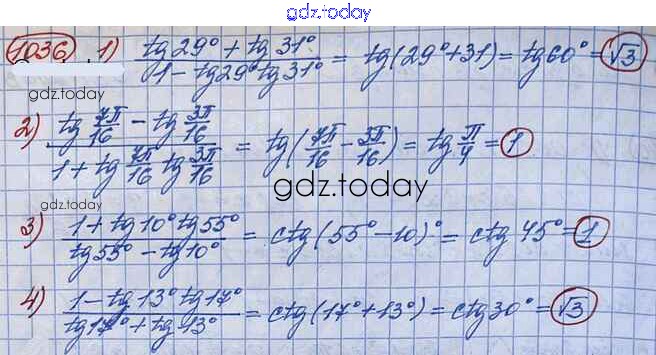 gdz.today
1036 1) (tg 29° + tg 31°)/(1 - tg 29° tg 31°) = tg(29° + 31) = tg 60° = √3
gdz.today
2) (tg 7π/16 - tg 3π/16)/(1 + tg 7π/16 tg 3π/16) = tg(7π/16 - 3π/16) = tg π/4 = 1
gdz.today
gdz.today
3) (1 + tg 10° tg 55°)/(tg 55° - tg 10°) = ctg(55° - 10)° = ctg 45° = 1
4) (1 - tg 13° tg 17°)/(tg 17° + tg 13°) = ctg(17° + 13°) = ctg 30° = √3